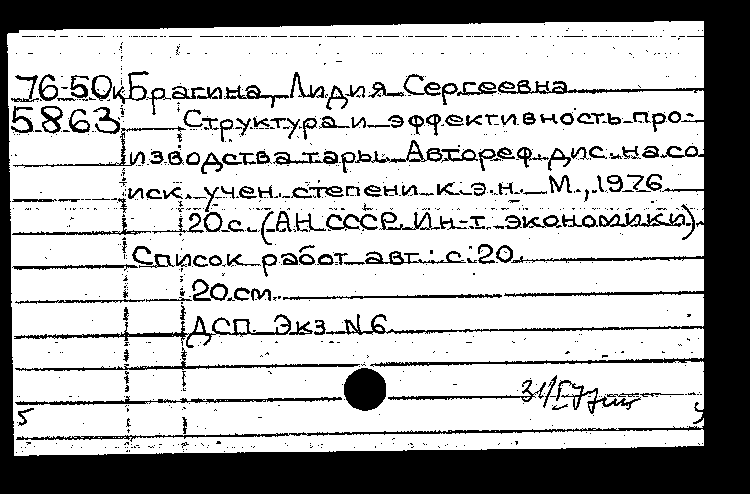 76-50к Брагина, Лидия Сергеевна
5863 Структура и эффективность про-
изводства тары. Автореф. дис. на со
иск. учен. степени к.э.н. М., 1976
20 с. (АН СССР. Ин-т экономики)
Список работ авт.: с. 20.
20 см.
ДСП Экз N 6
31/I
5